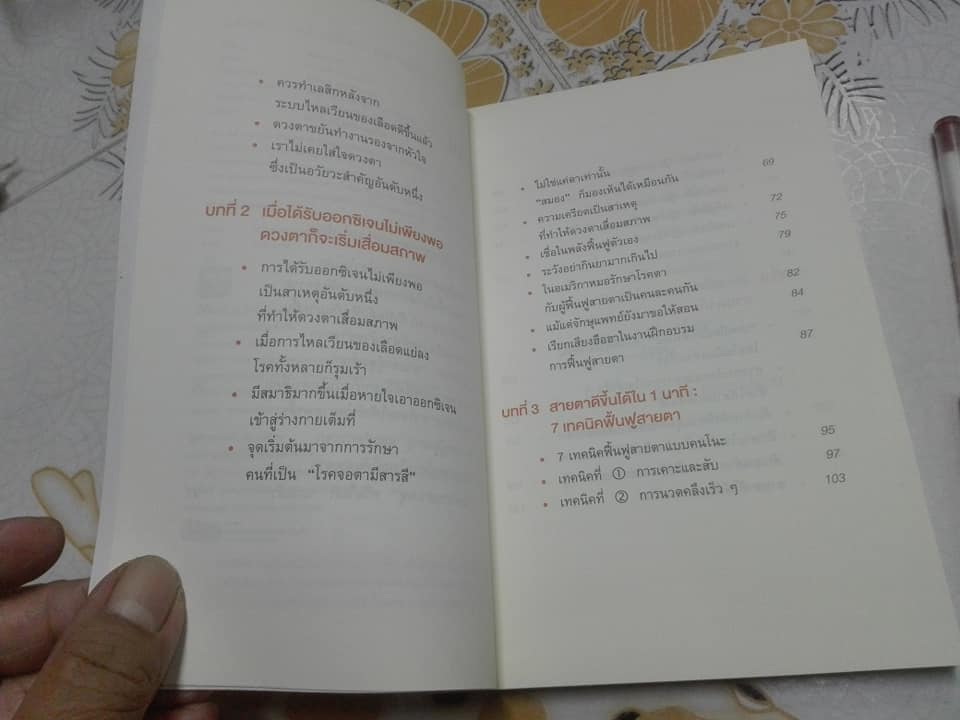 • ควรทำเลสิกหลังจาก
ระบบไหลเวียนของเลือดดีขึ้นแล้ว
• ดวงตาขยันทำงานรองจากหัวใจ
• เราไม่เคยใส่ใจดวงตา
ซึ่งเป็นอวัยวะสำคัญอันดับหนึ่ง
บทที่ 2 เมื่อได้รับออกซิเจนไม่เพียงพอ
ดวงตาก็จะเริ่มเสื่อมสภาพ
• การได้รับออกซิเจนไม่เพียงพอ
เป็นสาเหตุอันดับหนึ่ง
ที่ทำให้ดวงตาเสื่อมสภาพ
• เมื่อการไหลเวียนของเลือดแย่ลง
โรคทั้งหลายก็รุมเร้า
• มีสมาธิมากขึ้นเมื่อหายใจเอาออกซิเจน
เข้าสู่ร่างกายเต็มที่
• จุดเริ่มต้นมาจากการรักษา
คนที่เป็น “โรคจอตามีสารสี”
• ไม่ใช่แค่ตาเท่านั้น 69
“สมอง” ก็มองเห็นได้เหมือนกัน
• ความเครียดเป็นสาเหตุ 72
ที่ทำให้ดวงตาเสื่อมสภาพ
• เชื่อในพลังฟื้นฟูตัวเอง 75
• ระวังอย่ากินยามากเกินไป 79
• ในอเมริกาหมอรักษาโรคตา
กับผู้ฟื้นฟูสายตาเป็นคนละคนกัน 82
• แม้แต่จักษุแพทย์ยังมาขอให้สอน 84
• เรียกเสียงฮือฮาในงานฝึกอบรม
การฟื้นฟูสายตา 87
บทที่ 3 สายตาดีขึ้นได้ใน 1 นาที :
7 เทคนิคฟื้นฟูสายตา
• 7 เทคนิคฟื้นฟูสายตาแบบคนโนะ 95
• เทคนิคที่ ① การเคาะและสับ 97
• เทคนิคที่ ② การนวดคลึงเร็ว ๆ 103